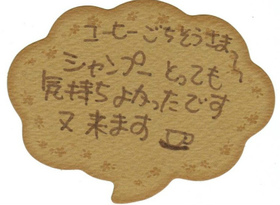 コーヒーごちそうさま〜
シャンプー とっても
気持ちよかったです
又 来ます